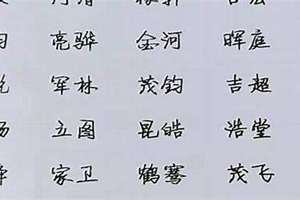 亮骅 金河 晖庭
军林 茂钧 吉超
立图 昆皓 浩堂
家卫 鹤骞 茂飞